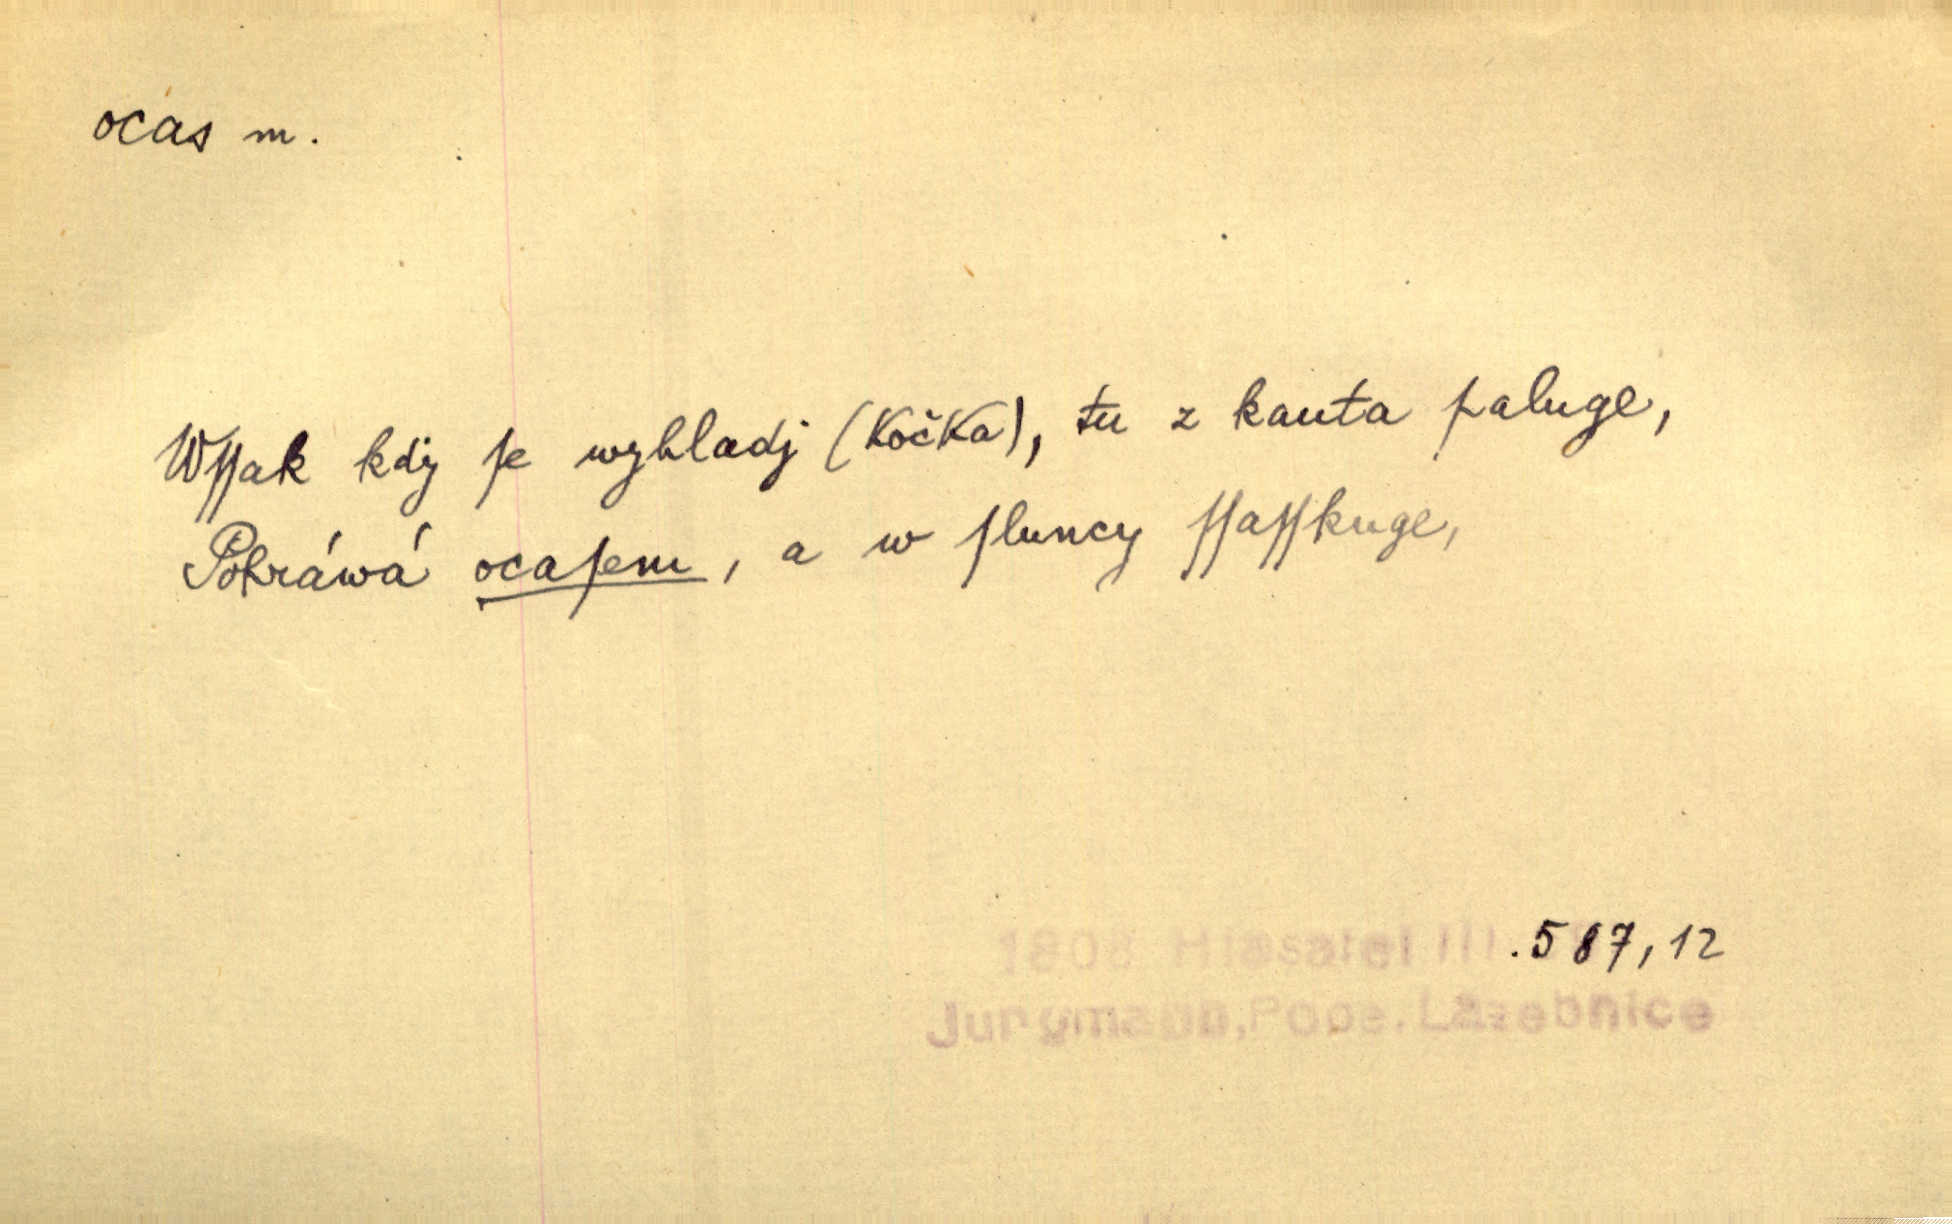 ocas m.
Wſſak kdy ſe wyhladj (Kočka), tu z kauta paluge,
Pohráwá ocaſem, a w ſluncy ſſaſſkuge,
1808 Hlasatel III .587,12
Jungmann, Pope. Lazebnice